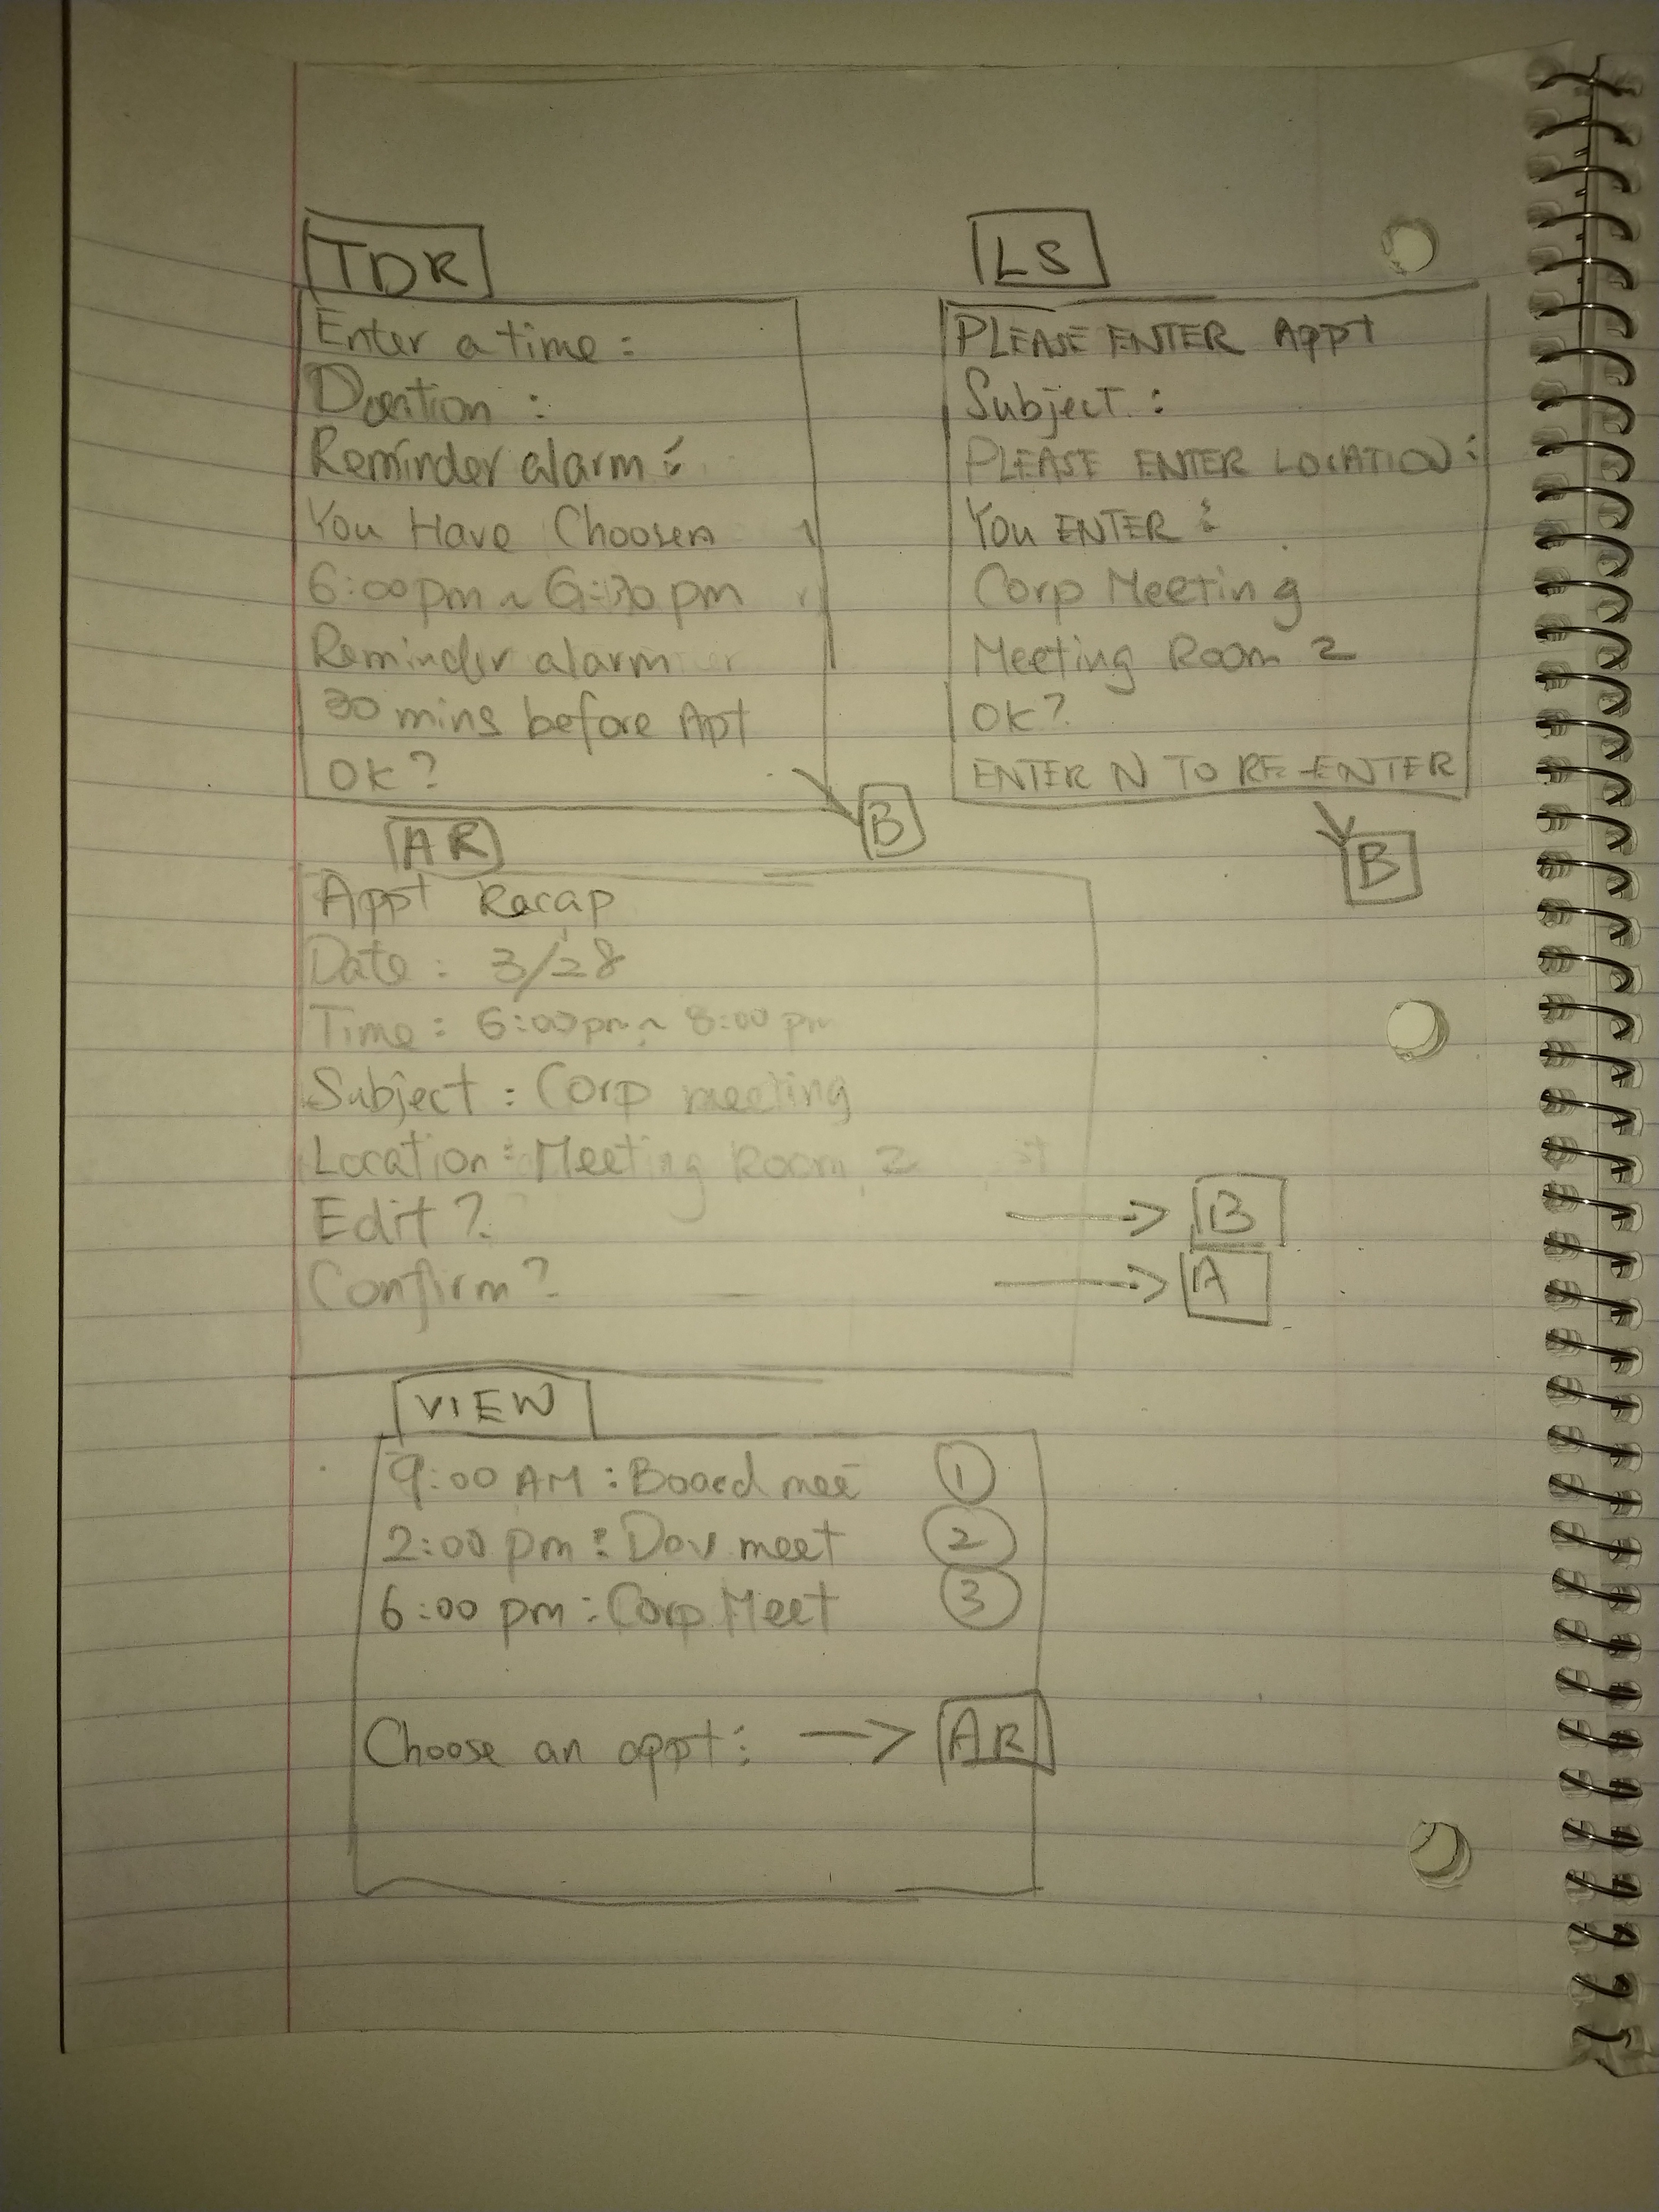 TDR
Enter a time:
Duration:
Reminder alarm:
You Have Choosen
6:00pm ~ 6:30pm
Reminder alarm
30 mins before Apt
OK?
B
LS
PLEASE ENTER APPT
Subject:
PLEASE ENTER LOCATION:
You ENTER:
Corp Meeting
Meeting Room 2
OK?
ENTER N TO RE-ENTER
B
AR
Appt Recap
Date: 3/28
Time: 6:00pm ~ 8:00pm
Subject: Corp meeting
Location: Meeting Room 2
Edit? B
Confirm? A
VIEW
9:00 AM: Board mee 1
2:00 pm: Dev. meet 2
6:00 pm: Corp. Meet 3
Choose an appt: AR